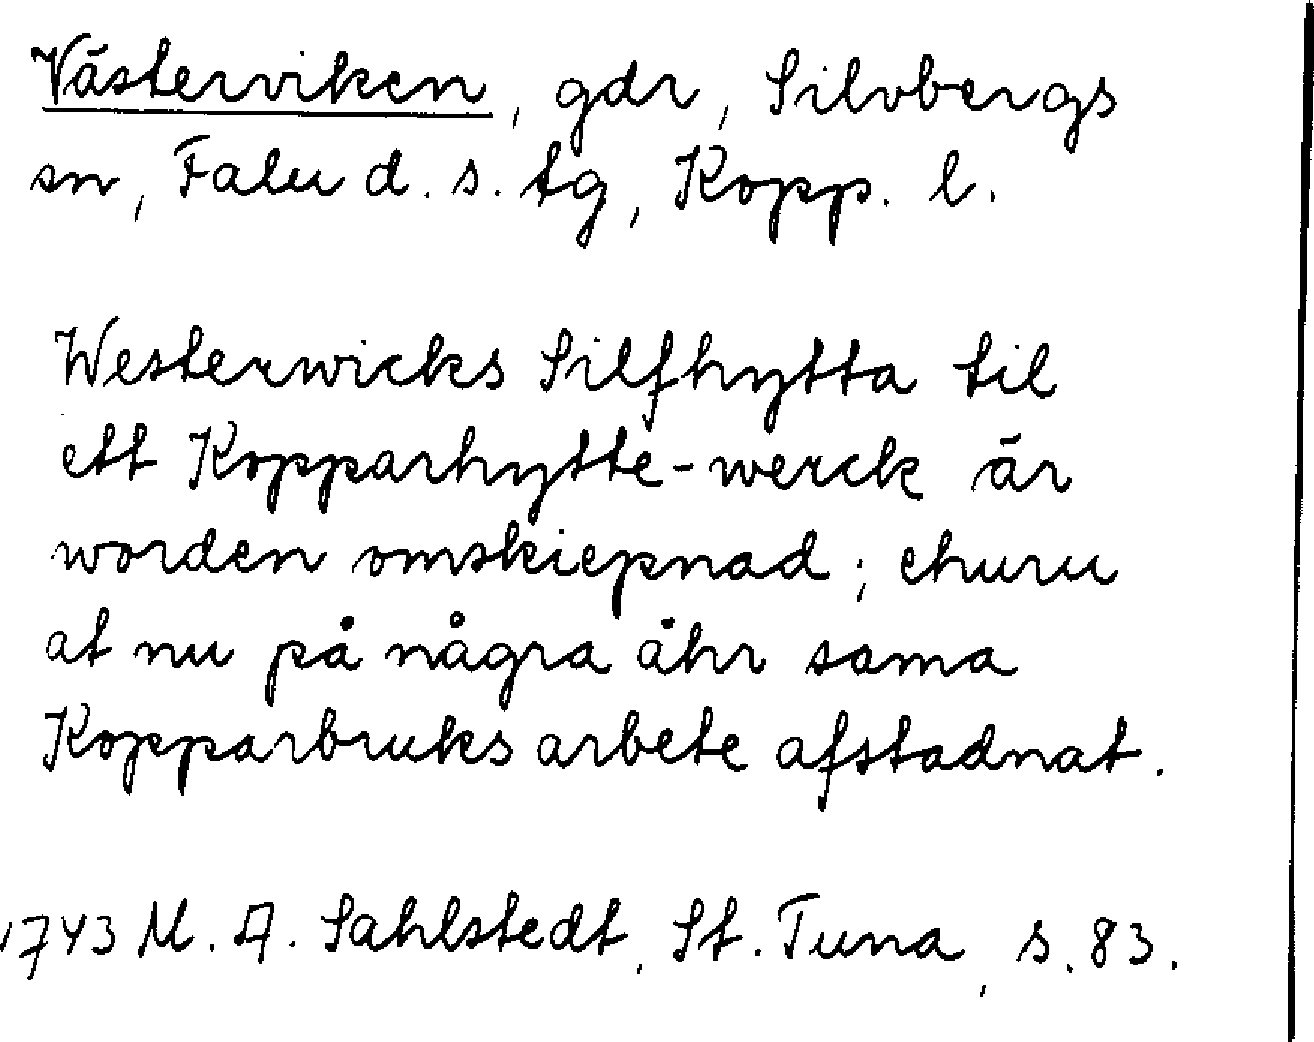 Västerviken, gdr, Silvbergs
sn, Falu d. s. tg, Kopp. l.
Westerwicks Silfhytta til
ett Kopparhytte-werck är
worden omskiepnad; ehuru
at nu på några åhr sama
Kopparbruks arbete afstadnat.
1743 M. A. Sahlstedt, St. Tuna, s. 83.